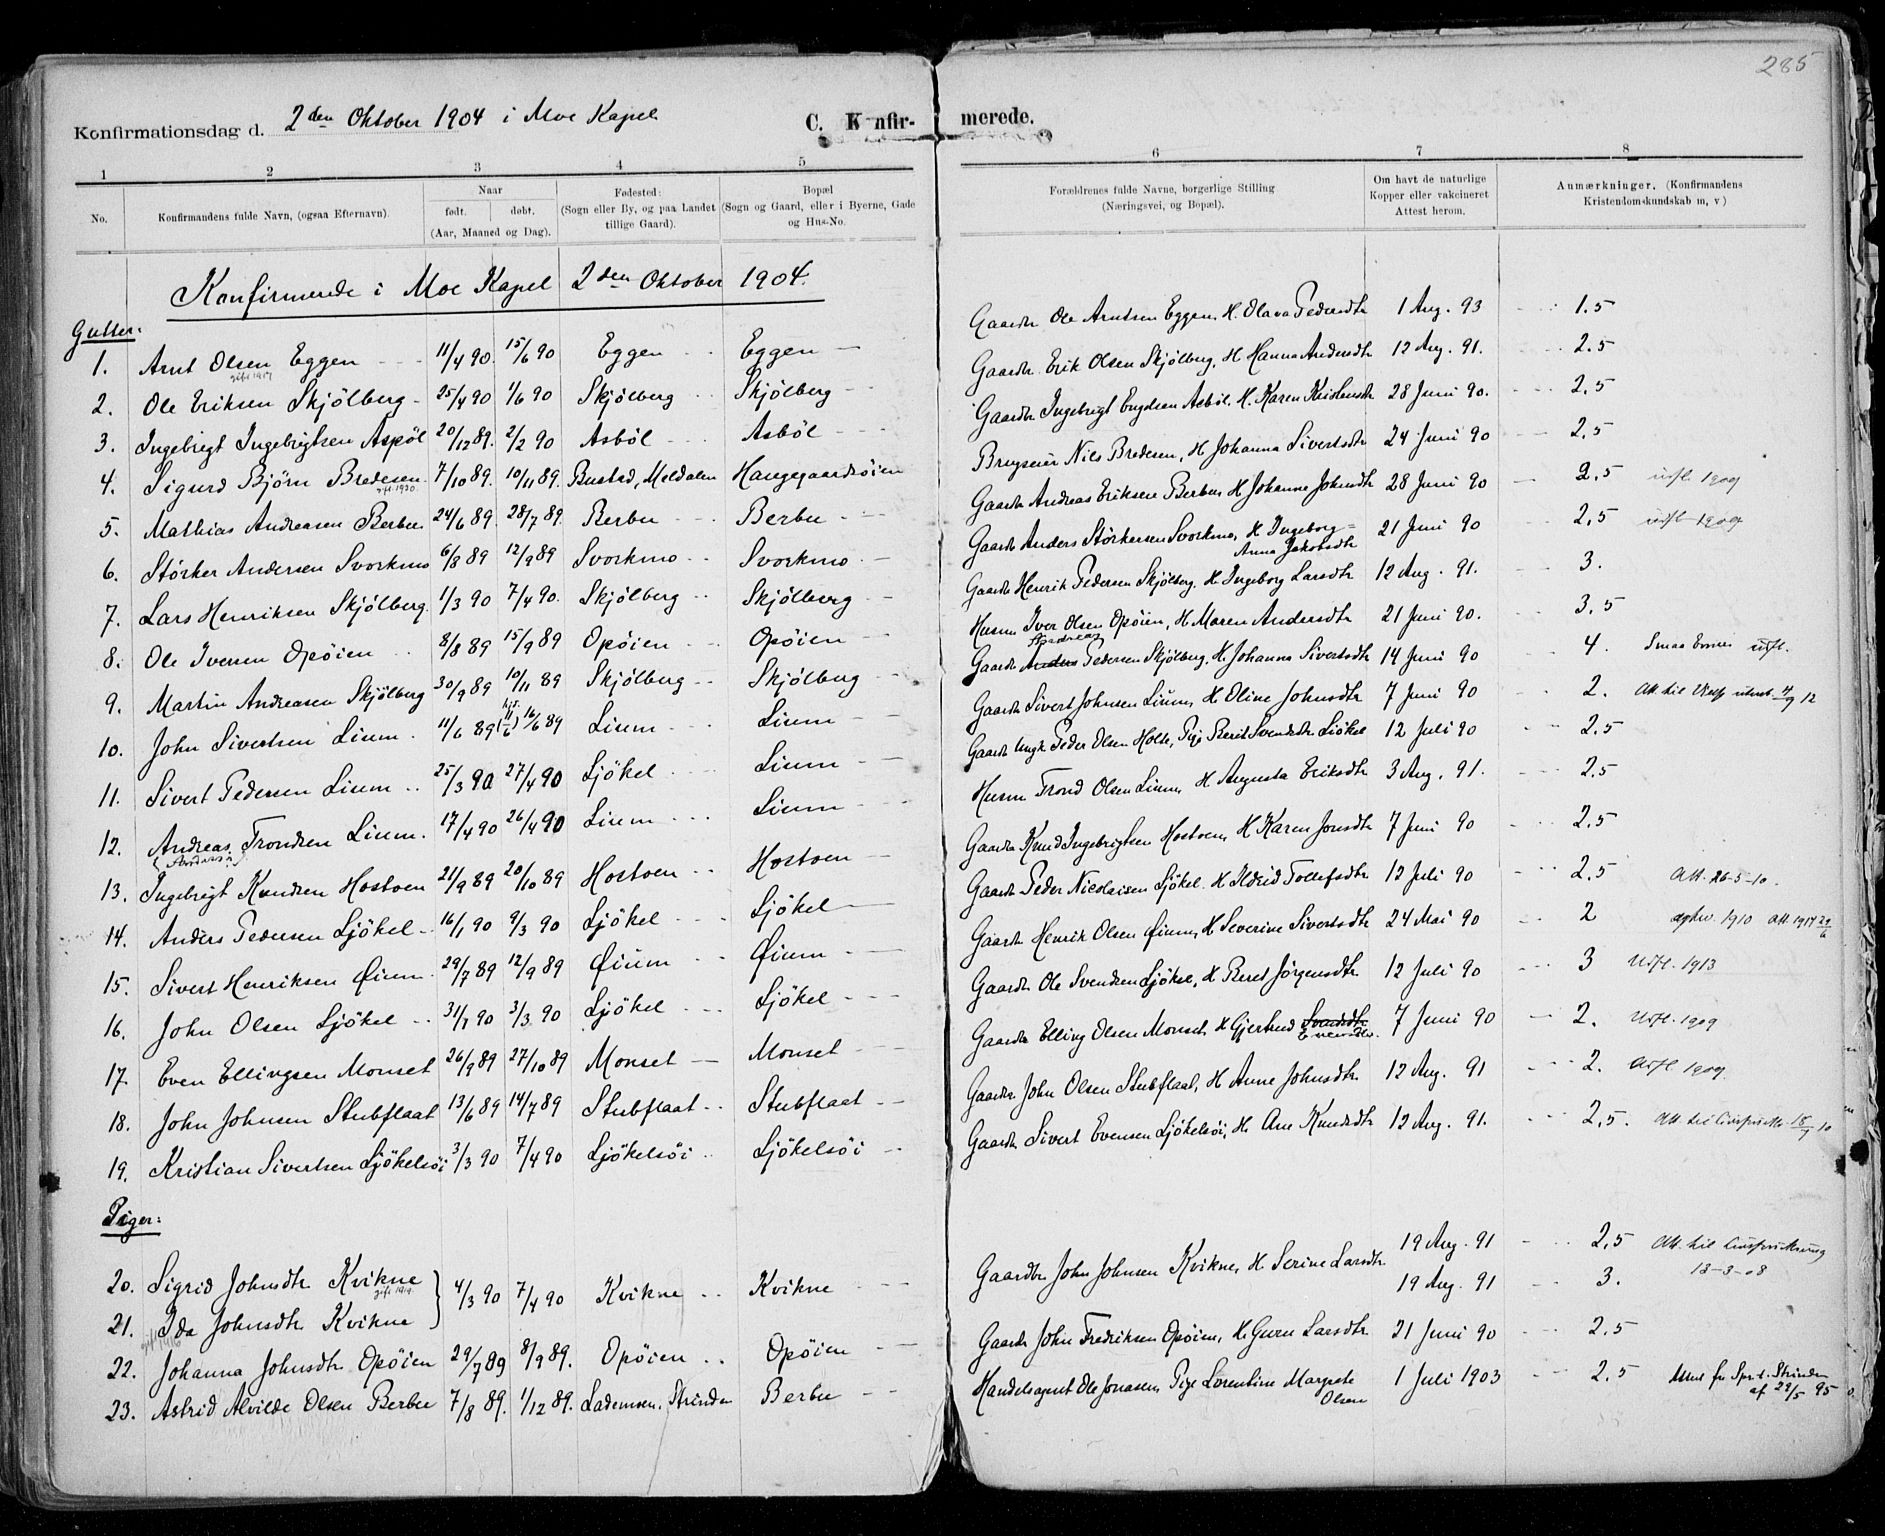 285
Konfirmationsdag d. 2den Oktober 1904 i Moe Kapel
C. Konfir- merede.
1 2 3 4 5 6 7 8
No. Konfirmandens fulde Navn, (ogsaa Efternavn). Naar født. døbt. (Aar, Maaned og Dag). Fødested: (Sogn eller By, og paa Landet tillige Gaard). Bopæl (Sogn og Gaard, eller i Byerne, Gade og Hus-No. Forældrenes fulde Navne, borgerlige Stilling (Næringsvei, og Bopæl). Om havt de naturlige Kopper eller vakcineret Attest herom. Anmærkninger. (Konfirmandens Kristendomskundskab m, v)
Konfirmerede i Moe Kapel 2den Oktober 1904.
Gutter:
1. Arnt Olsen Eggen 11/4 90. 15/6 90 Eggen Eggen Gaardbr Ole Arntsen Eggen, H. Olava Pedersdtr 1 Aug. 93 1.5
gift 1917
2. Ole Eriksen Skjölberg 25/4 90 1/6 90 Skjölberg Skjölberg Gaardbr. Erik Olsen Skjölberg, H. Hanna Andersdtr 12 Aug. 91. 2.5
3. Ingebrigt Ingebrigtsen Aspöl 20/12 89. 2/2 90 Asböl Asböl Gaardbr Ingebrigt Ingebrigtsen Asböl. H. Karen Kristensdtr 28 Juni 90. 2.5
4. Sigurd Björn Bredesen 7/10 89. 10/11 89. Busted, Meldalen Haugegaardsöien Brugseier Nils Bredesen, H Johanna Sivertsdtr 24 Juni 90 2.5
gift 1920
5. Mathias Andreasen Berbu 24/6 89. 28/7 89. Berbu Berbu Gaardbr Andreas Eriksen Berbu, H Johanne Johnsdtr 28 Juni 90 2,5 utfl. 1909
6. Störker Andersen Svorkmo 6/8 89 12/9 89 Svorkmo Svorkmo Gaardbr Anders Störkersen Svorkmo, H Ingeborg Anna Jakobsdtr 21 Juni 90 2,5 utfl. 1909
7. Lars Henriksen Skjölberg. 1/3 90 7/4 90. Skjölberg Skjölberg Gaardbr Henrik Pedersen Skjölberg, H. Ingeborg Larsdtr 12 Aug. 91. 3.
8. Ole Iversen Opöien 8/8 89 15/9 89 Opöien Opöien Husm Iver Olsen Opöien, H. Maren Andersdtr 21 Juni 90. 3.5
9. Martin Andreasen Skjölberg 30/9 89 10/11 89 Skjölberg Skjölberg Gaardbr Anders Andreas Pedersen Skjölberg, H. Johanna Sivertsdtr 14 Juni 90 4. Smaa Evner utfl.
10. John Sivertsen Lium 11/6 89 (hjd. 11/6) 16/6 89 Lium Lium Gaardbr Sivert Johnsen Lium, H Oline Johnsdtr 7 Juni 90 2. Att. til 4/9 12
11. Sivert Pedersen Lium 25/3 90 27/4 90 Ljökel Lium Gaardbr Ungk Peder Olsen Holte, Pige Berit Svendsdtr Ljökel 12 Juli 90 2.5
12. Andreas Trondsen Lium. 17/4 90 26/4 90 Lium Lium Husm Trond Olsen Lium, H Augusta Eriksdtr 3 Aug. 91. 2.5
(Anders)
13. Ingebrigt Knudsen Hostoen 21/9 89 20/10 89 Hostoen Hostoen Gaardbr Knud Ingebrigtsen Hostoen, H Karen Jonsdtr 7 Juni 90 2.5
14. Anders Pedersen Ljökel 16/1 90 9/3 90 Ljökel Ljökel Gaardbr Peder Nicolaisen Ljökel. H Ildrid Tollefsdtr 12 Juli 90 2.5 Att. 26-5-10.
15. Sivert Henriksen Öium 29/7 89 12/9 89 Öium Öium Gaardbr Henrik Olsen Öium, H Severine Sivertsdtr 24 Mai 90 2 1910 att. 1917 29/6
16. John Olsen Ljökel 31/1 90 3/3 90 Ljökel Ljökel Gaardbr Ole Svendsen Ljökel, H Beret Jörgensdtr 12 Juli 90 3 Utfl. 1913
17. Even Ellingsen Monset 26/9 89 27/10 89 Monset Monset Gaardbr Elling Olsen Monset, H Gjertrud Svendsdtr Evensdtr. 7 Juni 90 2. Utfl. 1909
18. John Johnsen Stubflaat 13/6 89 14/7 89 Stubflaat Stubflaat Gaardbr John Olsen Stubflaat, H. Anne Johnsdtr 12 Aug. 91 2. Utfl. 1909.
19. Kristian Sivertsen Ljökelsöi 3/3 90 7/4 90 Ljökelsöi Ljökelsöi Gaardbr Sivert Evensen Ljökelsöi, H. Ane Knudsdtr 12 Aug. 91. 2,5. Att. til 18/7 10
Piger:
20. Sigrid Johnsdtr Kvikne 4/3 90 7/4 90 Kvikne Kvikne Gaardbr John Johnsen Kvikne, H Serine Larsdtr 19 Aug. 91 2.5 Att. til
gift 1919
21. Ida Johnsdtr Kvikne 19 Aug. 91 3. 13-3-08
gift 1916
22. Johanna Johnsdtr Opöien 29/7 89 8/9 89. Opöien Opöien Gaardbr John Fredriksen Opöien, H. Guru Larsdtr 21 Juni 90 2.5
23. Astrid Alvilde Olsen Berbu 7/8 89. 1/12 89. Lademoen, Strinden Berbu Handelsagent Ole Jonasen, Pige Lorentine Margrete Olsen 1 Juli 1903 2.5 fr Spr. t. Strinden af 29/5 95